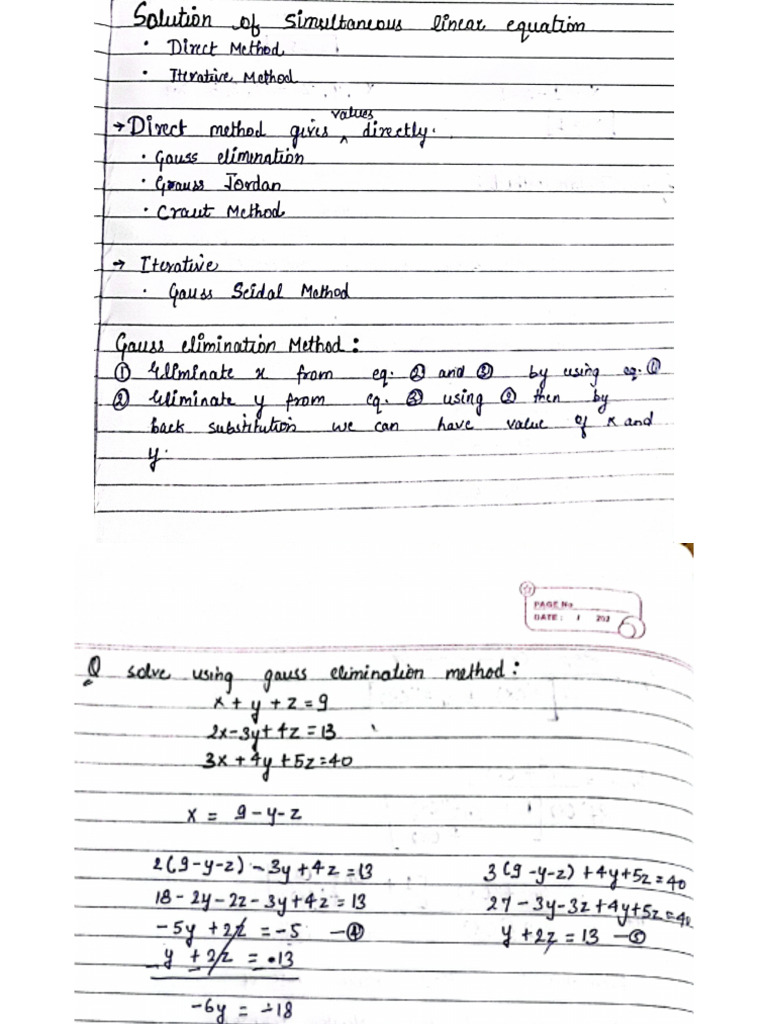 Solution of Simultaneous linear equation
• Direct Method
• Iterative Method
→ Direct method gives values directly.
• Gauss elimination
• Grauss Jordan
• Craut Method
→ Iterative
• Gauss Seidal Method
Gauss elimination Method:
① Eliminate x from eq. ② and ③ by using eq. ①
② Eliminate y from eq. ③ using ② then by
back substitution we can have value of x and
y.
PAGE No
DATE: / 202
Q solve using gauss elimination method:
x + y + z = 9
2x - 3y + 4z = 13
3x + 4y + 5z = 40
x = 9 - y - z
2(9-y-z) - 3y + 4z = 13 3(9-y-z) + 4y + 5z = 40
18 - 2y - 2z - 3y + 4z = 13 27 - 3y - 3z + 4y + 5z = 40
-5y + 2z = -5 —④ y + 2z = 13 —⑤
y + 2z = 13
-6y = -18